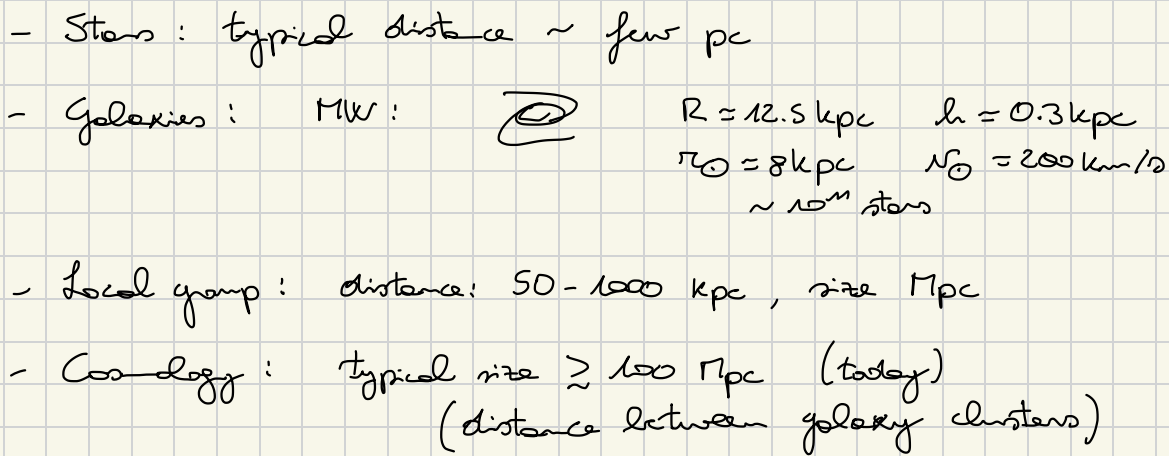 - Stars : typical distance ~ few pc
- Galaxies : MW : R ≃ 12.5 kpc h ≃ 0.3 kpc
r⊙ ≃ 8 kpc v⊙ ≃ 200 km/s
~ 10¹¹ stars
- Local group : distance : 50 - 1000 kpc , size Mpc
- Cosmology : typical size ≳ 100 Mpc (today)
(distance between galaxy clusters)